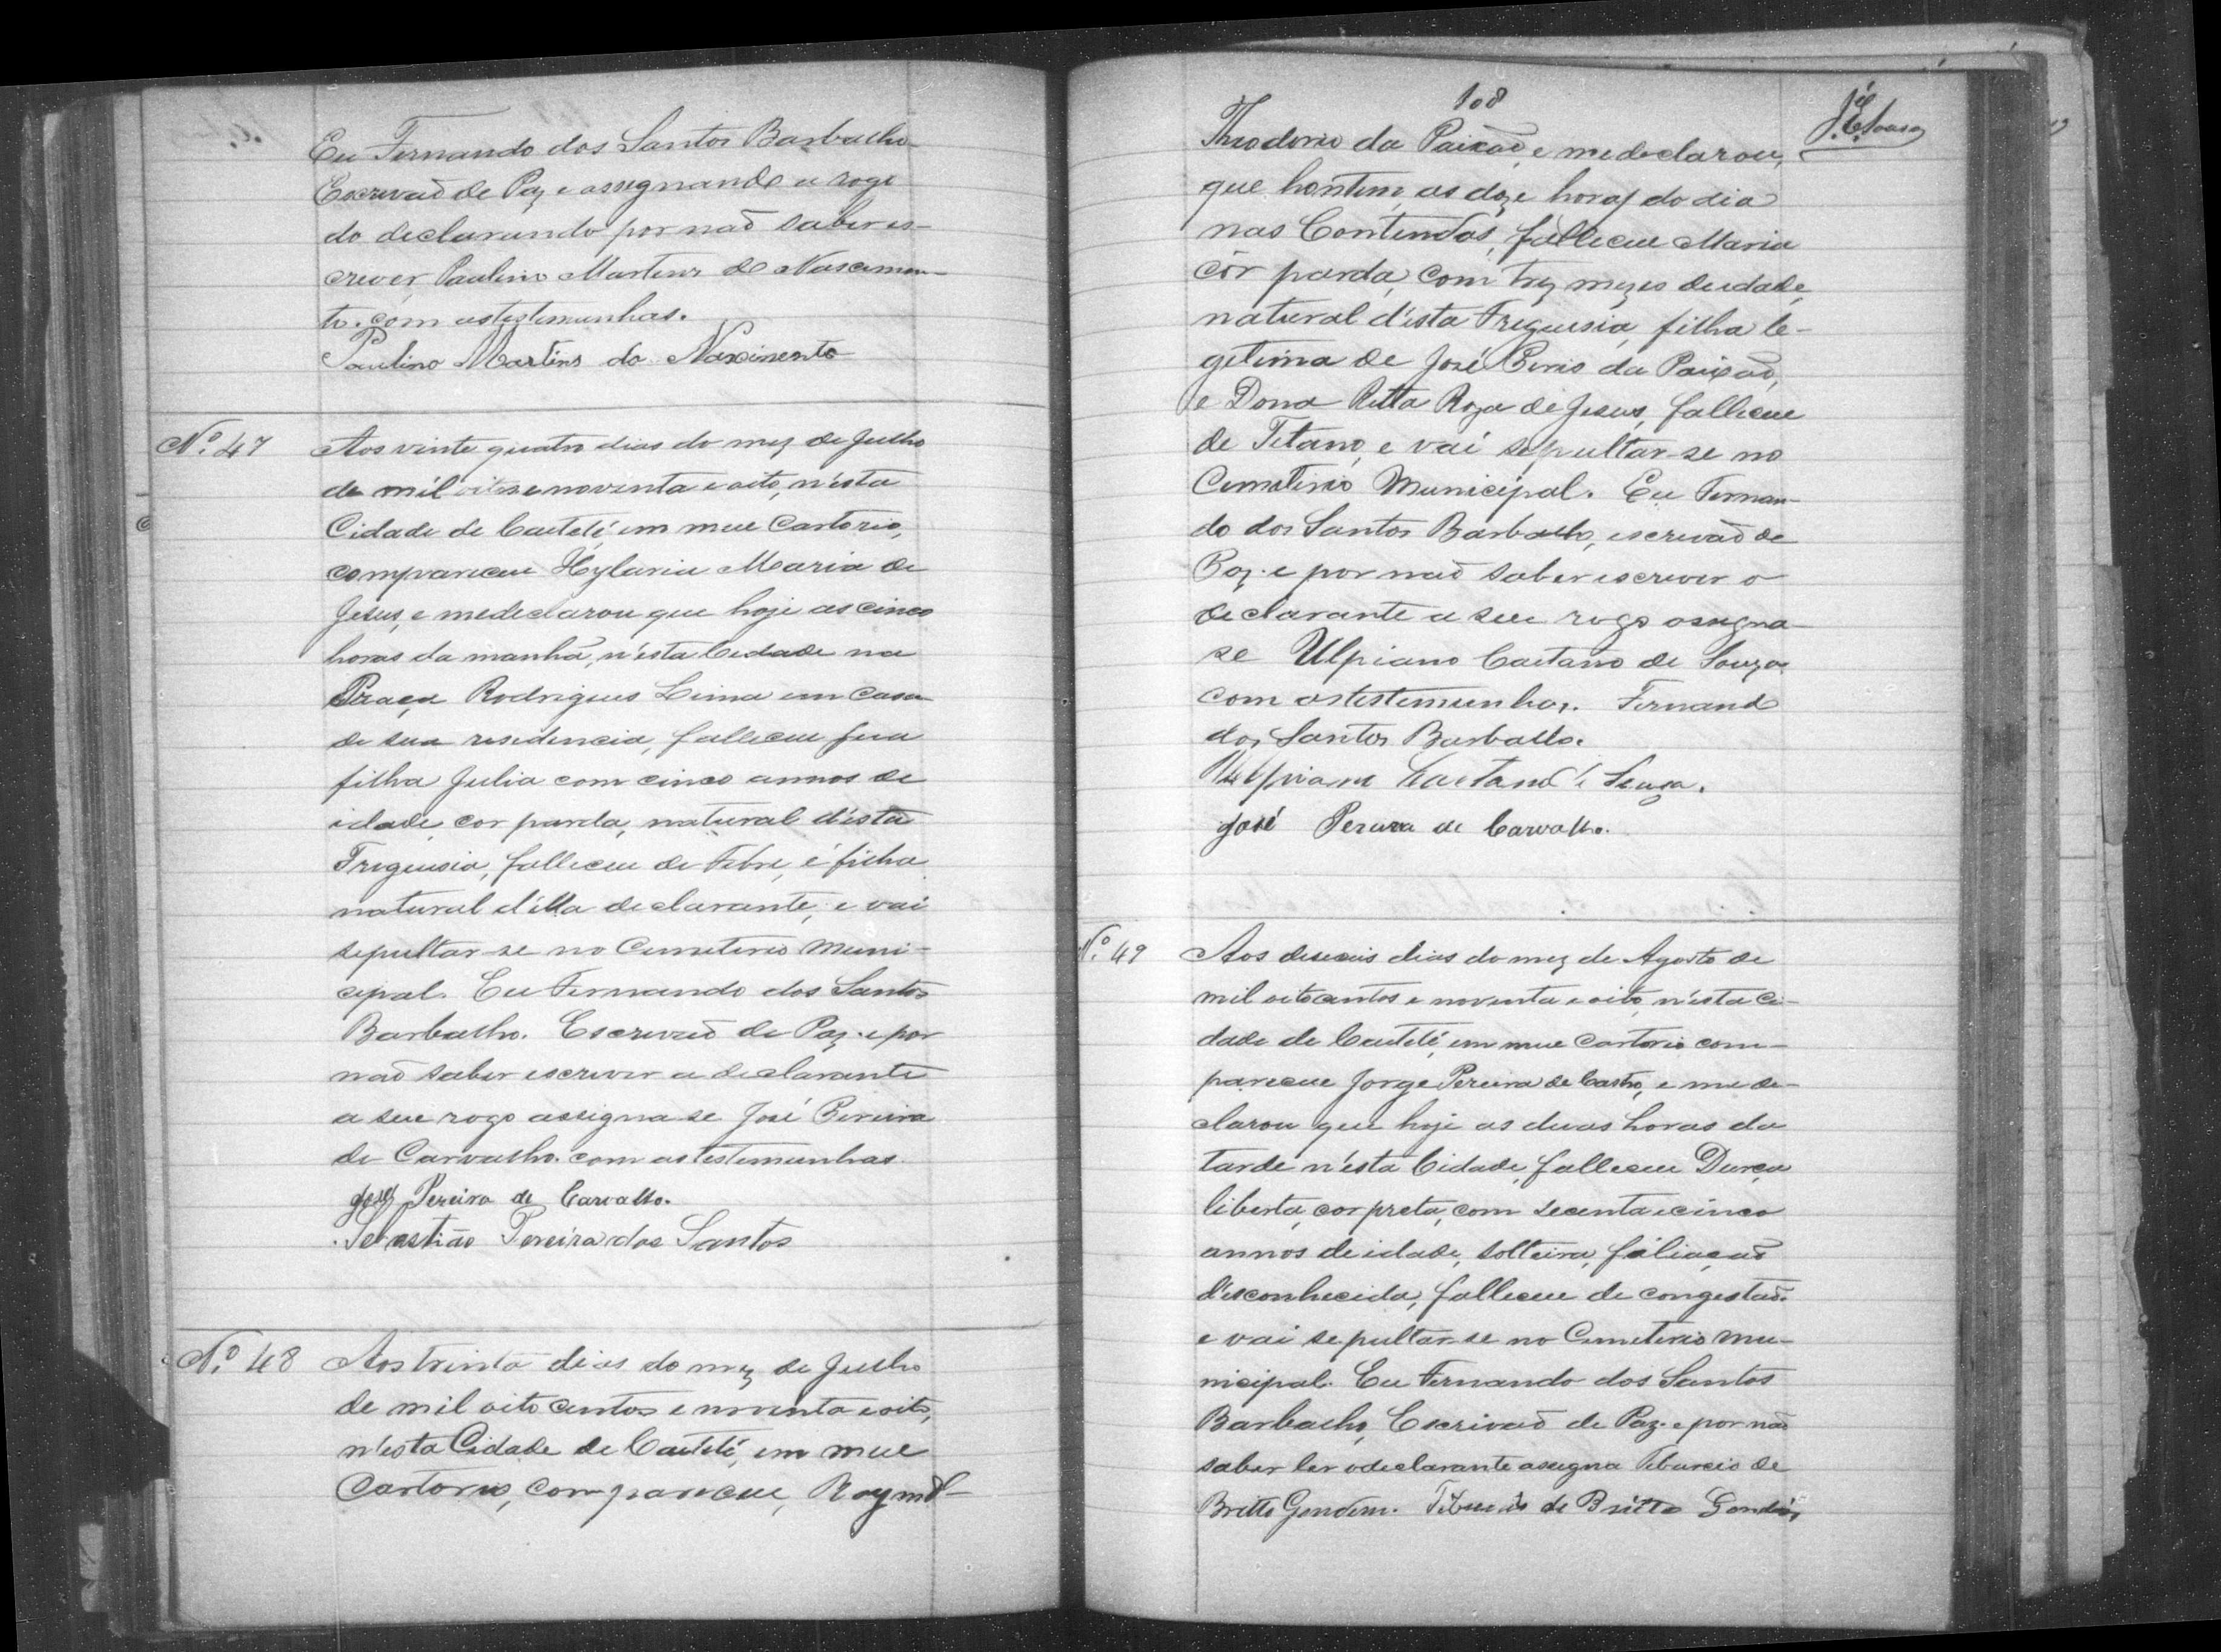 Eu Fernando dos Santos Barbalho
Escrevaõ de Paz e assignando a rogo
do declarando por naõ saber es-
crever, Paulino Martins do Nascimen-
to. com as testemunhas.
Paulino Martins do Nascimento
Nº. 47
Aos vinte quatro dias do mez de Julho
de mil oitoce noventa e oito, n'esta
Cidade de Caetité, em meu Cartorio,
compareceu Hylaria Maria de
Jesus, e me declarou que hoje as cinco
horas da manhã, n'esta Cidade na
Praça Rodrigues Lima em casa
de sua residencia, falleceu sua
filha Julia com cinco annos de
idade, cor parda, natural d'esta
Freguesia, falleceu de Febre, é filha
natural d'ella declarante, e vai
sepultar-se no Cemiterio Muni-
cipal. Eu Fernando dos Santos
Barbalho. Escrevaõ de Paz. e por
naõ saber escrever a declarante
a seu rogo assigna-se José Pereira
de Carvalho. com as testemunhas
José Pereira de Carvalho.
Sebastião Pereira dos Santos
Nº. 48
Aos trinta dias do mez de Julho
de mil oito centos e noventa e oito,
n'esta Cidade de Caetité, em meu
Cartorio, compareceu,
108
Theodorio da Paixaõ, e me declarou,
que hontem, as doze horas do dia
nas Contendas, falleceu Maria
côr parda, com trez mezes de idade,
natural d'esta Freguesia, filha le-
getima de José Peris da Paixaõ,
e Dona Ritta Roza de Jesus, falleceu
de Tetano, e vai sepultar-se no
Cemiterio Municipal. Eu Fernan-
do dos Santos Barbalho, escrevaõ de
Paz. e por naõ saber escrever o
declarante a seu rogo assigna-
se Ulpiano Caetano de Souza.
com as testemunhas. Fernando
dos Santos Barbalho.
Ulpiano Caetano de Souza.
José Pereira de Carvalho.
Nº. 49
Aos deseceis dias do mez de Agosto de
mil oitocentos e noventa e oito, n'esta Ci-
dade de Caetité, em meu Cartorio com-
pareceu Jorge Pereira de Castro, e me de-
clarou que hoje as duas horas da
tarde n'esta Cidade, falleceu
liberta, cor preta, com secenta e cinco
annos de idade, solteira, filiaçaõ
desconhecida, falleceu de congestaõ.
e vai sepultar-se no Cemiterio Mu-
nicipal. Eu Fernando dos Santos
Barbalho, Escrivaõ de Paz. e por naõ
saber ler o declarante assigna Tiburcio de
Britto Gondim. Tiburcio de Britto Gondim